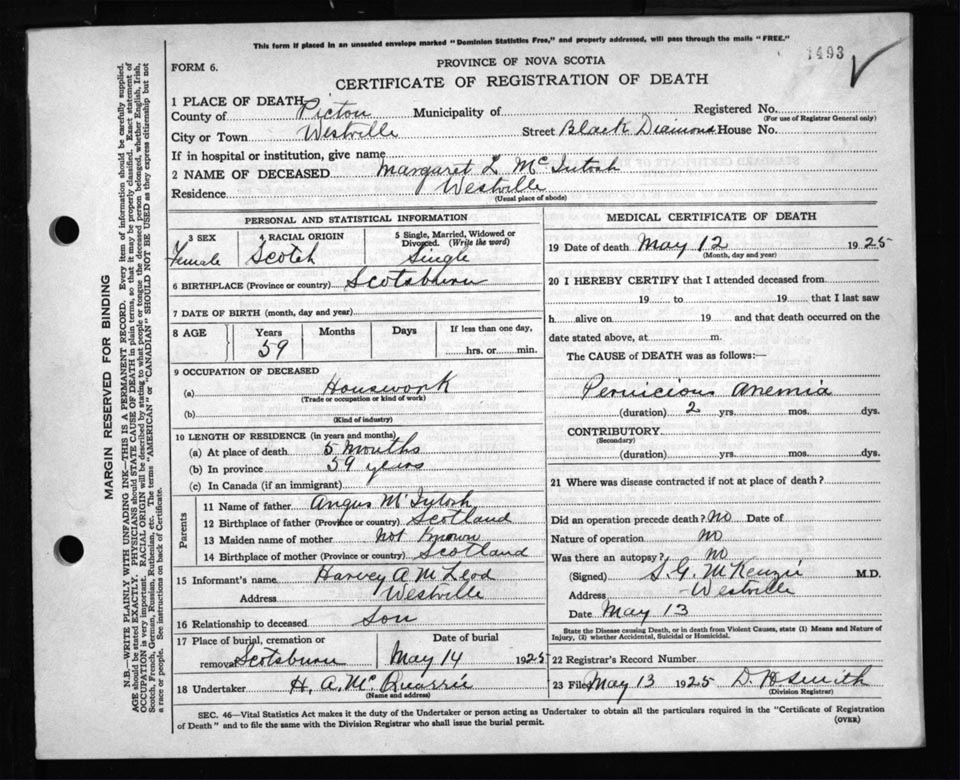 This form if placed in an unsealed envelope marked "Dominion Statistics Free," and properly addressed, will pass through the mails "FREE."
1493
PROVINCE OF NOVA SCOTIA
FORM 6.
CERTIFICATE OF REGISTRATION OF DEATH
1 PLACE OF DEATH
County of Pictou Municipality of Registered No.
(For use of Registrar General only)
City or Town Westville Street Black Diamond House No.
If in hospital or institution, give name
2 NAME OF DECEASED Margaret L McIntosh
Residence Westville
(Usual place of abode)
PERSONAL AND STATISTICAL INFORMATION
3 SEX 4 RACIAL ORIGIN 5 Single, Married, Widowed or Divorced. (Write the word)
Female Scotch Single
6 BIRTHPLACE (Province or country) Scotsburn
7 DATE OF BIRTH (month, day and year)
8 AGE Years Months Days If less than one day,
59 hrs. or min.
9 OCCUPATION OF DECEASED
(a) Housework
(Trade or occupation or kind of work)
(b)
(Kind of industry)
10 LENGTH OF RESIDENCE (in years and months)
(a) At place of death 5 months
(b) In province 59 years
(c) In Canada (if an immigrant)
Parents
11 Name of father Angus McIntosh
12 Birthplace of father (Province or country) Scotland
13 Maiden name of mother Not Known
14 Birthplace of mother (Province or country) Scotland
15 Informant's name Harvey A McLeod
Address Westville
16 Relationship to deceased Son
17 Place of burial, cremation or Date of burial
removal Scotsburn May 14 1925
18 Undertaker H. A. McQuarrie
(Name and address)
MEDICAL CERTIFICATE OF DEATH
19 Date of death May 12 1925
(Month, day and year)
20 I HEREBY CERTIFY that I attended deceased from
19 to 19 that I last saw
h alive on 19 and that death occurred on the
date stated above, at m.
The CAUSE of DEATH was as follows:—
Pernicious Anemia
(duration) 2 yrs. mos. dys.
CONTRIBUTORY
(Secondary)
(duration) yrs. mos. dys.
21 Where was disease contracted if not at place of death?
Did an operation precede death? No Date of
Nature of operation No
Was there an autopsy? No
(Signed) S. G. McKenzie M.D.
Address Westville
Date May 13
State the Disease causing Death, or in death from Violent Causes, state (1) Means and Nature of
Injury, (2) whether Accidental, Suicidal or Homicidal.
22 Registrar's Record Number
23 Filed May 13 1925 D. H Smith
(Division Registrar)
SEC. 46—Vital Statistics Act makes it the duty of the Undertaker or person acting as Undertaker to obtain all the particulars required in the "Certificate of Registration
of Death" and to file the same with the Division Registrar who shall issue the burial permit.
(OVER)
MARGIN RESERVED FOR BINDING
N.B.—WRITE PLAINLY WITH UNFADING INK—THIS IS A PERMANENT RECORD. Every item of information should be carefully supplied.
AGE should be stated EXACTLY. PHYSICIANS should STATE CAUSE OF DEATH in plain terms, so that it may be properly classified. Exact statement of
OCCUPATION is very important. RACIAL ORIGIN will be described by stating to what people or tongue the deceased person belonged, whether English, Irish,
Scotch, French, German, Russian, Ruthenian, etc. The terms "AMERICAN" or "CANADIAN" SHOULD NOT BE USED as they express citizenship but not
a race or people. See instructions on back of Certificate.